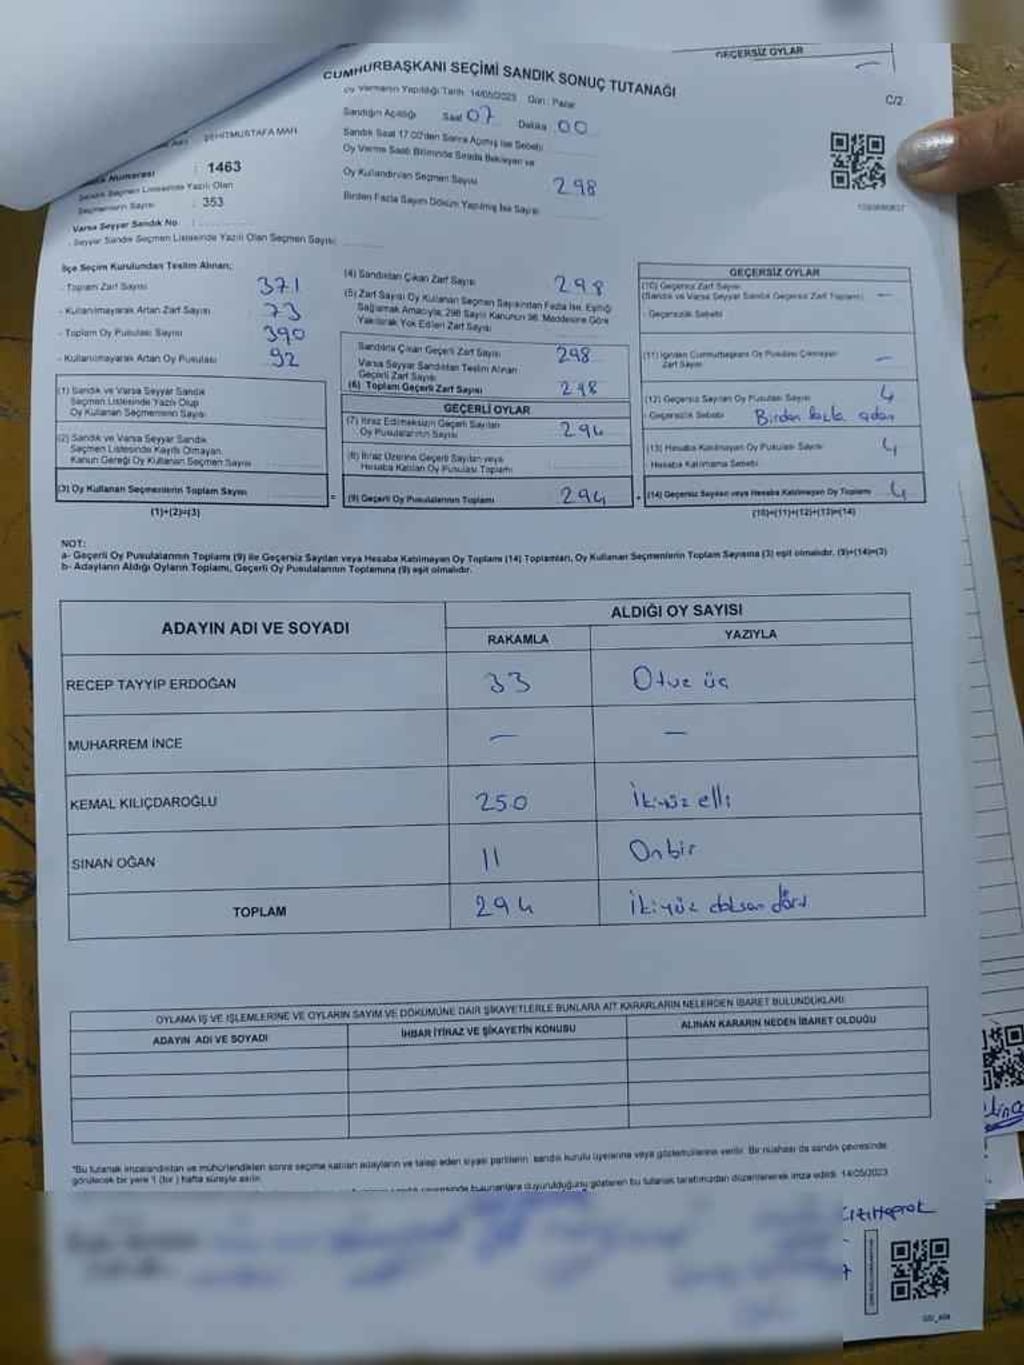 GEÇERSİZ OYLAR
CUMHURBAŞKANI SEÇİMİ SANDIK SONUÇ TUTANAĞI
Oy Vermenin Yapıldığı Tarih: 14/05/2023 Gün: Pazar
C/2
Sandığın Açıldığı Saat 07 Dakika 00
Sandık Saat 17.00'den Sonra Açılmış İse Sebebi
Oy Verme Saati Bitiminde Sırada Bekleyen ve
Oy Kullandırılan Seçmen Sayısı 298
Birden Fazla Sayım Döküm Yapılmış İse Sayısı
ŞEHİTMUSTAFA MAH
Numarası : 1463
Sandık Seçmen Listesinde Yazılı Olan
Seçmenlerin Sayısı : 353
Varsa Seyyar Sandık No :
- Seyyar Sandık Seçmen Listesinde Yazılı Olan Seçmen Sayısı:
İlçe Seçim Kurulundan Teslim Alınan;
- Toplam Zarf Sayısı 371
- Kullanılmayarak Artan Zarf Sayısı 73
- Toplam Oy Pusulası Sayısı 390
- Kullanılmayarak Artan Oy Pusulası 92
(1) Sandık ve Varsa Seyyar Sandık
Seçmen Listesinde Yazılı Olup
Oy Kullanan Seçmenlerin Sayısı
(2) Sandık ve Varsa Seyyar Sandık
Seçmen Listesinde Kayıtlı Olmayan
Kanun Gereği Oy Kullanan Seçmen Sayısı
(3) Oy Kullanan Seçmenlerin Toplam Sayısı =
(1)+(2)=(3)
(4) Sandıktan Çıkan Zarf Sayısı 298
(5) Zarf Sayısı Oy Kullanan Seçmen Sayısından Fazla İse, Eşitliği
Sağlamak Amacıyla, 298 Sayılı Kanunun 98. Maddesine Göre
Yakılarak Yok Edilen Zarf Sayısı
Sandıkta Çıkan Geçerli Zarf Sayısı 298
Varsa Seyyar Sandıktan Teslim Alınan
Geçerli Zarf Sayısı
(6) Toplam Geçerli Zarf Sayısı 298
GEÇERLİ OYLAR
(7) İtiraz Edilmeksizin Geçerli Sayılan
Oy Pusulalarının Sayısı 294
(8) İtiraz Üzerine Geçerli Sayılan veya
Hesaba Katılan Oy Pusulası Toplamı
(9) Geçerli Oy Pusulalarının Toplamı 294 +
GEÇERSİZ OYLAR
(10) Geçersiz Zarf Sayısı
(Sandık ve Varsa Seyyar Sandık Geçersiz Zarf Toplamı) -
- Geçersizlik Sebebi
(11) İçinden Cumhurbaşkanı Oy Pusulası Çıkmayan
Zarf Sayısı -
(12) Geçersiz Sayılan Oy Pusulası Sayısı 4
- Geçersizlik Sebebi Birden fazla aday
(13) Hesaba Katılmayan Oy Pusulası Sayısı 4
Hesaba Katılmama Sebebi
(14) Geçersiz Sayılan veya Hesaba Katılmayan Oy Toplamı 4
(10)+(11)+(12)+(13)=(14)
NOT:
a- Geçerli Oy Pusulalarının Toplamı (9) ile Geçersiz Sayılan veya Hesaba Katılmayan Oy Toplamı (14) Toplamları, Oy Kullanan Seçmenlerin Toplam Sayısına (3) eşit olmalıdır. (9)+(14)=(3)
b- Adayların Aldığı Oyların Toplamı, Geçerli Oy Pusulalarının Toplamına (9) eşit olmalıdır.
ADAYIN ADI VE SOYADI
ALDIĞI OY SAYISI
RAKAMLA YAZIYLA
RECEP TAYYİP ERDOĞAN 33 Otuz üç
MUHARREM İNCE - -
KEMAL KILIÇDAROĞLU 250 İkiyüz elli
SİNAN OĞAN 11 Onbir
TOPLAM 294 İkiyüz doksan dört
OYLAMA İŞ VE İŞLEMLERİNE VE OYLARIN SAYIM VE DÖKÜMÜNE DAİR ŞİKAYETLERLE BUNLARA AİT KARARLARIN NELERDEN İBARET BULUNDUKLARI
ADAYIN ADI VE SOYADI İHBAR İTİRAZ VE ŞİKAYETİN KONUSU ALINAN KARARIN NEDEN İBARET OLDUĞU
*Bu tutanak imzalandıktan ve mühürlendikten sonra seçime katılan adayların ve talep eden siyasi partilerin sandık kurulu üyelerine veya gözlemcilerine verilir. Bir nüshası da sandık çevresinde
görülecek bir yere 1 (bir) hafta süreyle asılır.
bulunanlara duyurulduğunu gösteren bu tutanak tarafımızdan düzenlenerek imza edildi. 14/05/2023